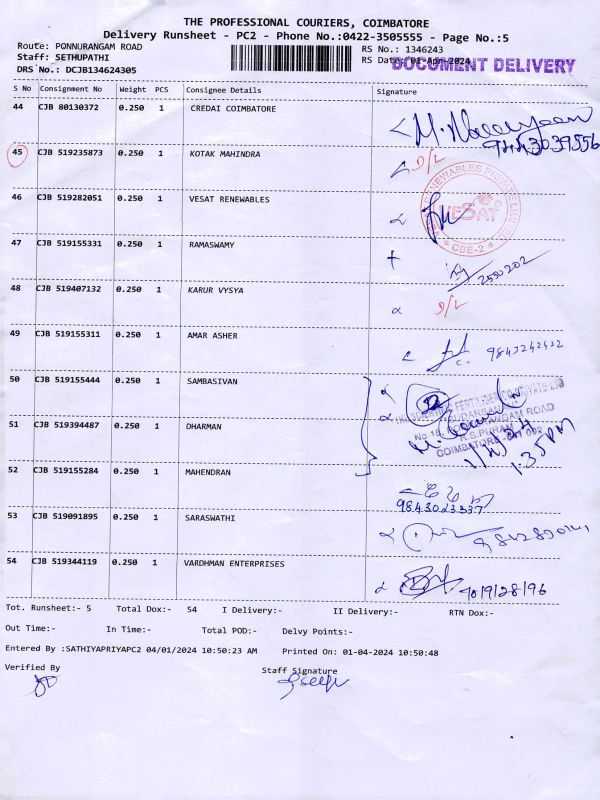 THE PROFESSIONAL COURIERS, COIMBATORE
Delivery Runsheet - PC2 - Phone No.:0422-3505555 - Page No.:5
Route: PONNURANGAM ROAD
RS No.: 1346243
Staff: SETHUPATHI
RS Date: 01-Apr-2024
DOCUMENT DELIVERY
DRS No.: DCJB134624305
S No Consignment No Weight PCS Consignee Details Signature
44 CJB 80130372 0.250 1 CREDAI COIMBATORE
9443039556
45 CJB 519235873 0.250 1 KOTAK MAHINDRA
D/L
46 CJB 519282051 0.250 1 VESAT RENEWABLES
VESAT
CBE-2
47 CJB 519155331 0.250 1 RAMASWAMY
2550202
48 CJB 519407132 0.250 1 KARUR VYSYA
D/L
49 CJB 519155311 0.250 1 AMAR ASHER
9843242422
50 CJB 519155444 0.250 1 SAMBASIVAN
51 CJB 519394487 0.250 1 DHARMAN
R.S.PURAM
COIMBATORE
1.35PM
52 CJB 519155284 0.250 1 MAHENDRAN
9843023337
53 CJB 519091895 0.250 1 SARASWATHI
54 CJB 519344119 0.250 1 VARDHMAN ENTERPRISES
9019128196
Tot. Runsheet:- 5 Total Dox:- 54 I Delivery:- II Delivery:- RTN Dox:-
Out Time:- In Time:- Total POD:- Delvy Points:-
Entered By :SATHIYAPRIYAPC2 04/01/2024 10:50:23 AM Printed On: 01-04-2024 10:50:48
Verified By Staff Signature